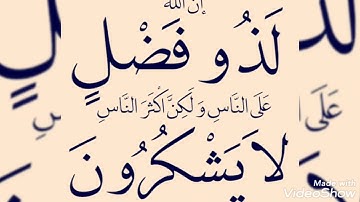 إن الله
لَذُو فَضْلٍ
عَلَى النَّاسِ وَلَكِنَّ أَكْثَرَ النَّاسِ
لَا يَشْكُرُونَ
Made with
VideoShow